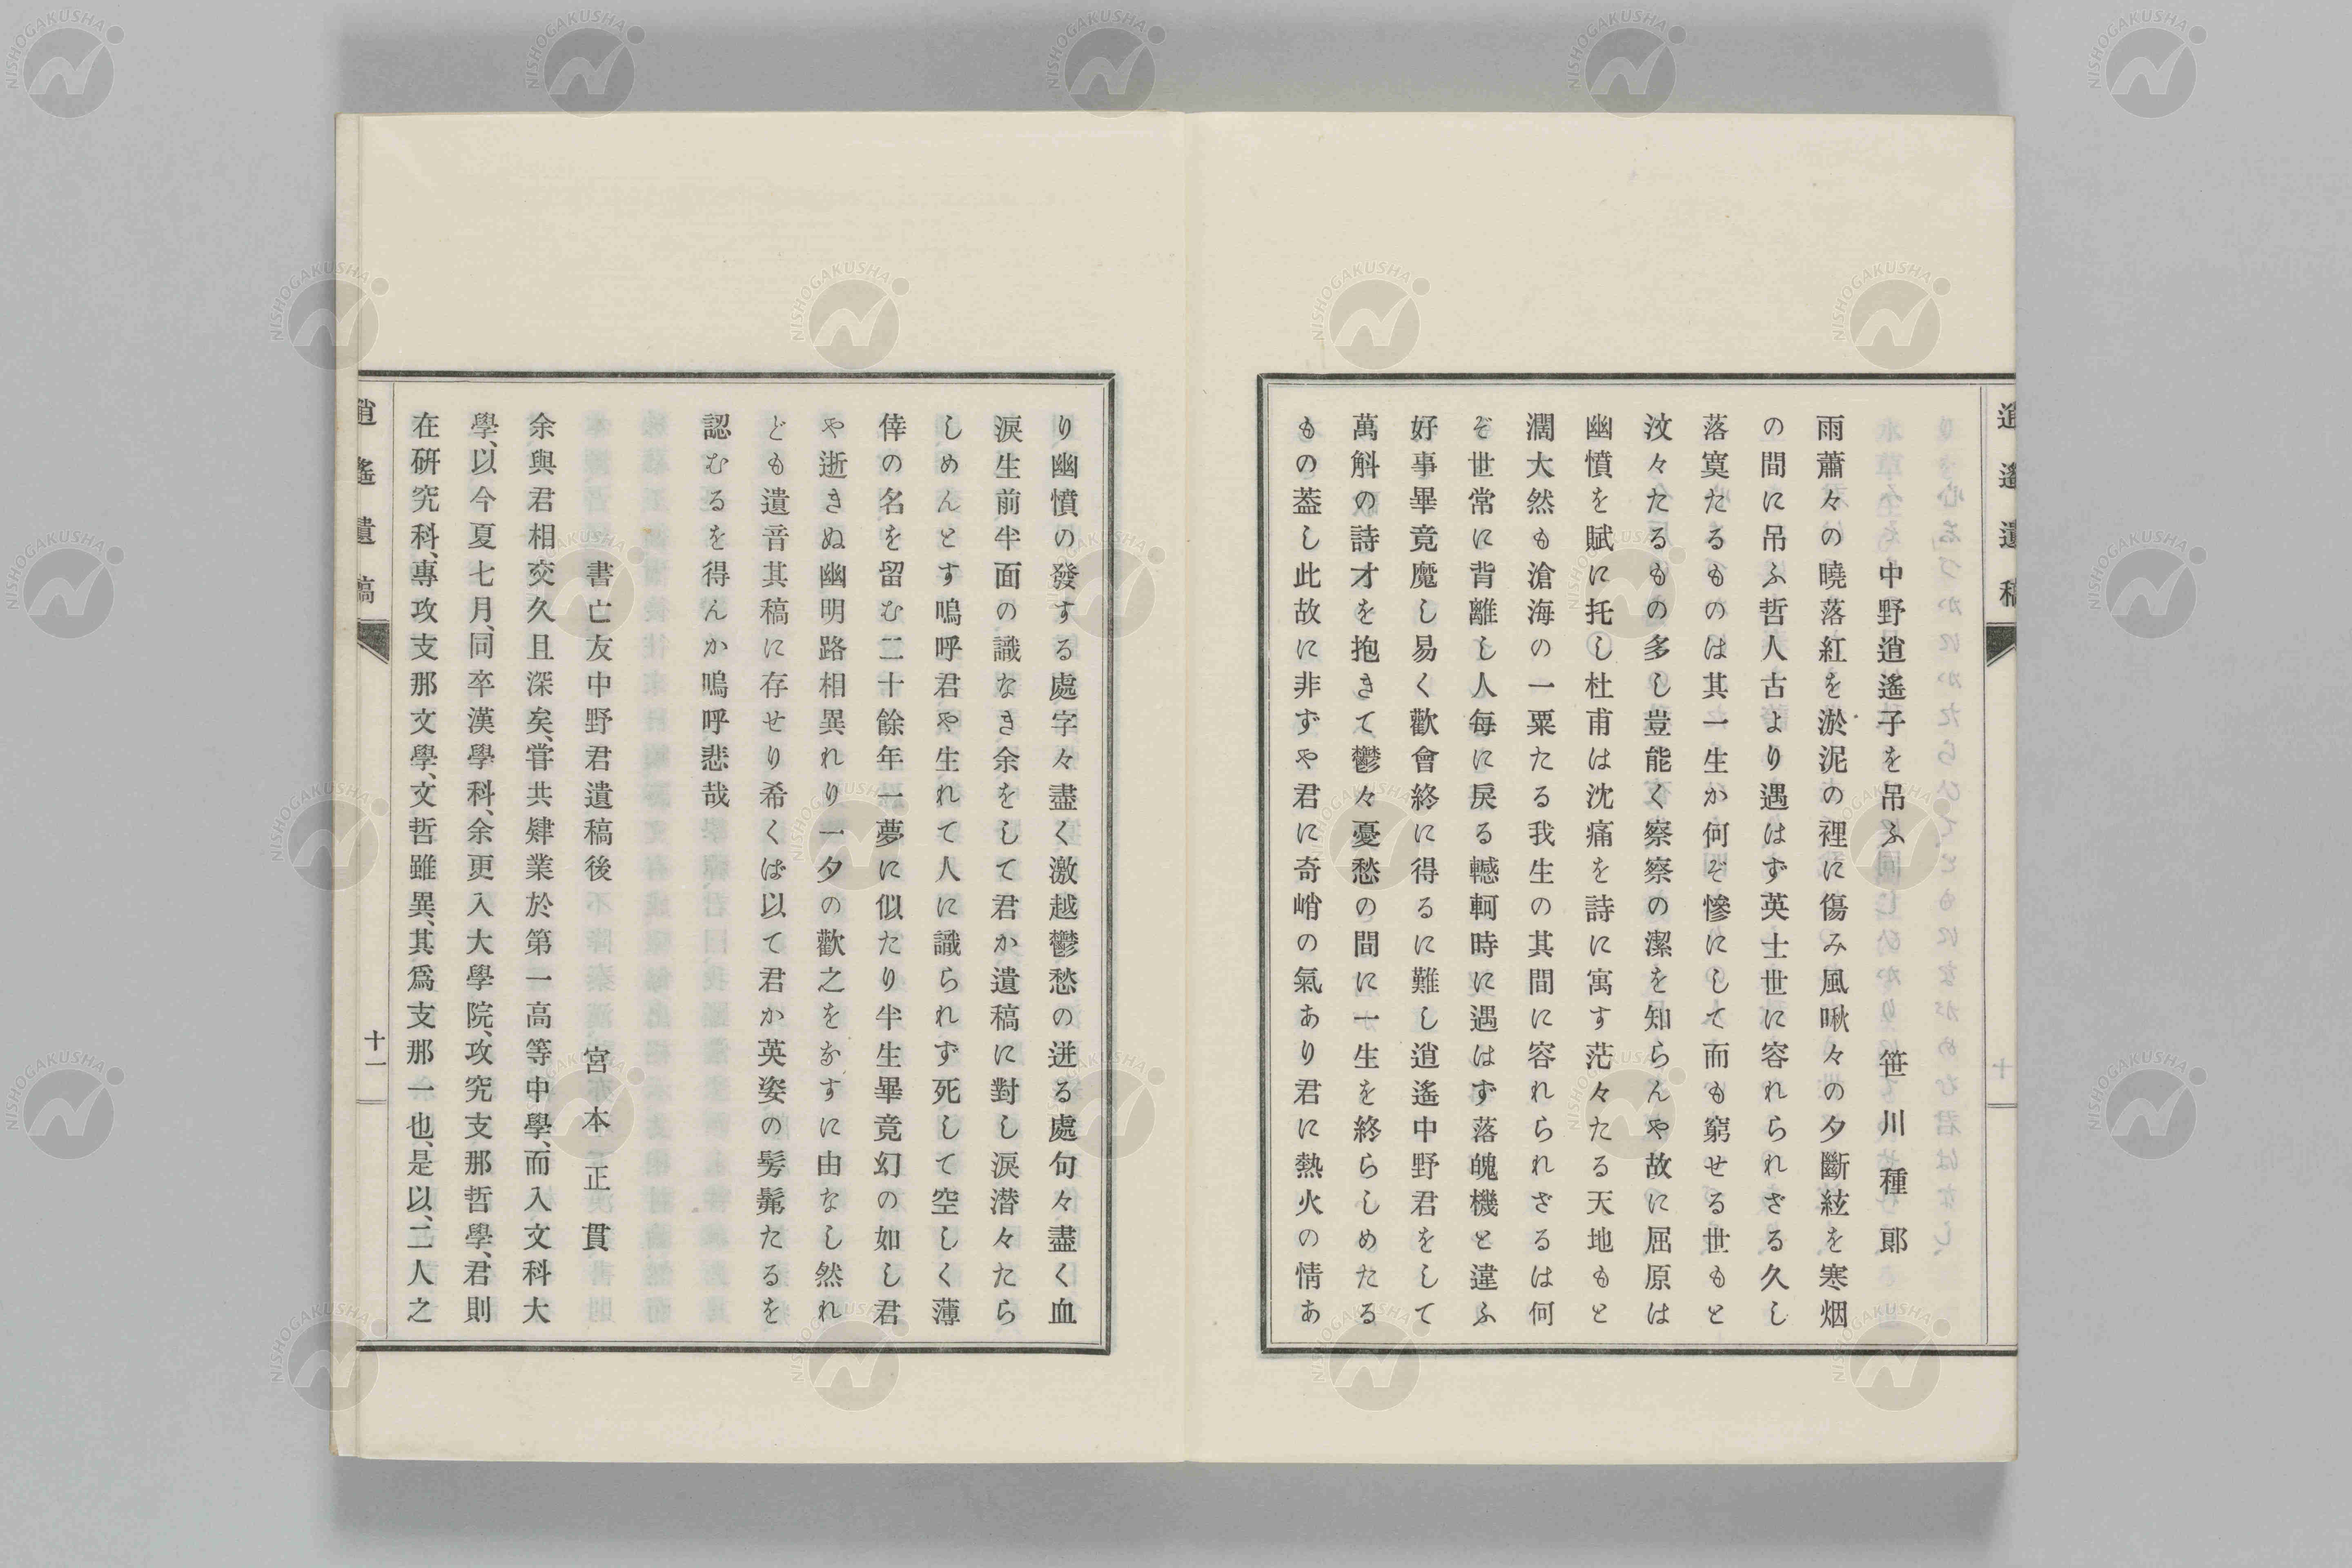 逍遙遺稿
中野逍遙子を吊ふ　笹川種郎
雨蕭々の曉落紅を淤泥の裡に傷み風啾々の夕斷絃を寒烟
の間に吊ふ哲人古より遇はず英士世に容れられざる久し
落寞たるものは其一生か何ぞ慘にして而も窮せる世もと
汶々たるもの多し豈能く察察の潔を知らんや故に屈原は
幽憤を賦に托し杜甫は沈痛を詩に寓す茫々たる天地もと
濶大然も滄海の一粟たる我生の其間に容れられざるは何
ぞ世常に背離し人每に戻る轗軻時に遇はず落魄機と違ふ
好事畢竟魔し易く歡會終に得るに難し逍遙中野君をして
萬斛の詩才を抱きて鬱々憂愁の間に一生を終らしめたる
もの葢し此故に非ずや君に奇峭の氣あり君に熱火の情あ
り幽憤の發する處字々盡く激越鬱愁の迸る處句々盡く血
淚生前半面の識なき余をして君か遺稿に對し淚潜々たら
しめんとす嗚呼君や生れて人に識られず死して空しく薄
倖の名を留む二十餘年一夢に似たり半生畢竟幻の如し君
や逝きぬ幽明路相異れり一夕の歡之をなすに由なし然れ
ども遺音其稿に存せり希くは以て君か英姿の髣髴たるを
認むるを得んか嗚呼悲哉
書亡友中野君遺稿後　宮本正貫
余與君相交久且深矣、嘗共肄業於第一高等中學、而入文科大
學、以今夏七月、同卒漢學科、余更入大學院、攻究支那哲學、君則
在硏究科、專攻支那文學、文哲雖異、其爲支那一也、是以、二人之
逍遙遺稿
十一